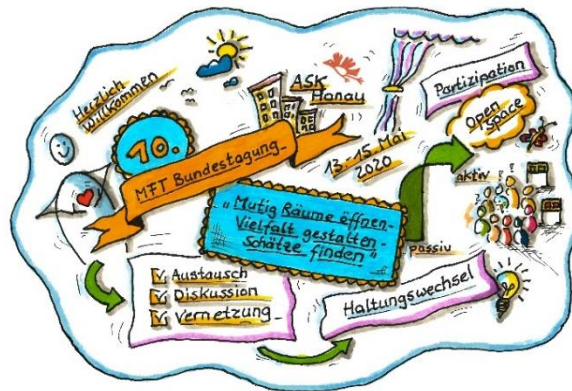 Herzlich
Willkommen
10.
MFT Bundestagung
ASK
Hanau
13.-15. Mai
2020
Partizipation
Open
Space
aktiv
passiv
„Mutig Räume öffnen-
Vielfalt gestalten-
Schätze finden"
Austausch
Diskussion
Vernetzung
Haltungswechsel